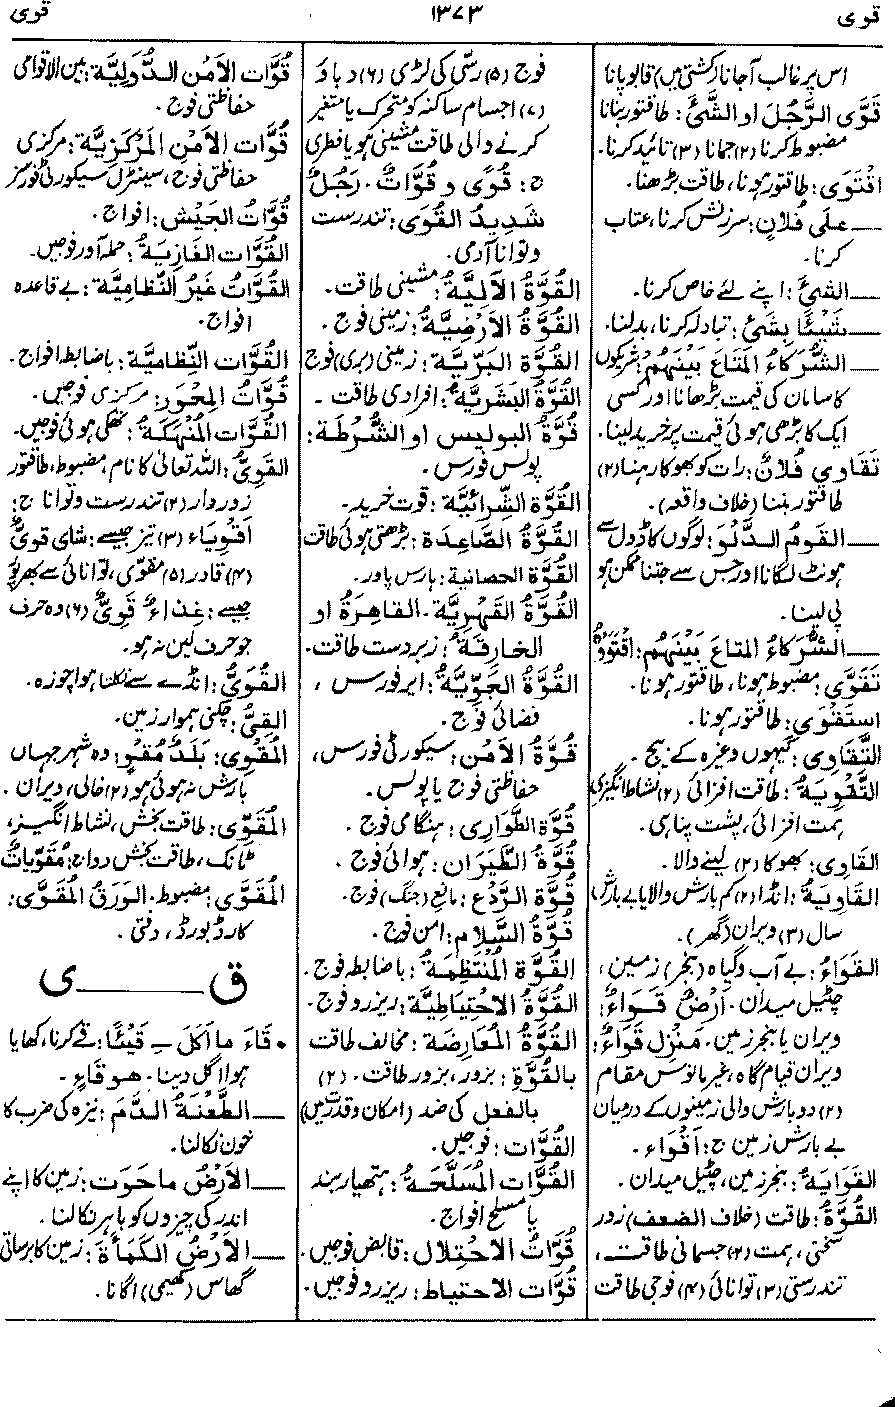 قوی
۱۳۷۳
قوی
اس پر غالب آجانا (کشتی میں) قابو پانا
قَوَّى الرَّجُلَ او الشَّئَ : طاقتور بنانا
مضبوط کرنا (۲) جمانا (۳) تائید کرنا۔
اقْتَوَى : طاقتور ہونا، طاقت بڑھنا۔
ــــ علی فُلَانٍ : سرزنش کرنا، عتاب
کرنا۔
ــــ الشئَ : اپنے لئے خاص کرنا۔
ــــ شَيْئًا بِشَئٍ : تبادلہ کرنا، بدلنا۔
ــــ الشُّرَكَاءُ المَتاعَ بَيْنَهُم : شریکوں
کا سامان کی قیمت بڑھانا اور کسی
ایک کا بڑھی ہوئی قیمت پر خرید لینا۔
تَقَاوى فُلَانٌ : رات کو بھوکا رہنا (۲)
طاقتور بننا (خلاف واقعہ)۔
ــــ القومُ الدَّلْوَ : لوگوں کا ڈول سے
ہونٹ لگانا اور جس سے جتنا ممکن ہو
پی لینا۔
ــــ الشُّرَكاءُ المتاعَ بَيْنَهُم : اقْتَوَوْهُ
تَقَوَّى : مضبوط ہونا، طاقتور ہونا۔
استَقْوَى : طاقتور ہونا۔
التَّقَاوِى : گیہوں وغیرہ کے بیج۔
التَّقْوِيَةُ : طاقت افزائی (۲) نشاط انگیزی
ہمت افزائی، پشت پناہی۔
القَاوِى : بھوکا (۲) لینے والا۔
القَاوِيَةُ : انڈا (۲) کم بارش والا یا بے بارش
سال (۳) ویران (گھر)۔
القَوَاءُ : بے آب وگیاہ (بنجر) زمین،
چٹیل میدان۔ اَرْضٌ قَوَاءٌ :
ویران یا بنجر زمین۔ مَنْزِل قَوَاءٌ :
ویران قیام گاہ، غیر مانوس مقام
(۲) دو بارش والی زمینوں کے درمیان
بے بارش زمین ج : اَقْوَاء۔
القَوَايَةُ : بنجر زمین، چٹیل میدان۔
القُوَّةُ : طاقت (خلاف الضعف) زور
سختی، ہمت (۲) جسمانی طاقت،
تندرستی (۳) توانائی (۴) فوجی طاقت
فوج (۵) رسّی کی لڑی (۶) دباؤ
(۷) اجسام ساکنہ کو متحرک یا متغیر
کرنے والی طاقت مشینی ہو یا فطری
ج : قُوًى و قُوَّاتٌ۔ رَجُلٌ
شَدِيدُ القُوَى : تندرست
وتوانا آدمی۔
القُوَّةُ الآلِيَّةُ : مشینی طاقت۔
القُوَّةُ الأَرْضِيَّةُ : زمینی فوج۔
القُوَّة البَرِّيَّة : زمینی (بری) فوج
القُوَّةُ البَشَرِيَّةُ : افرادی طاقت۔
قُوَّةُ البوليس او الشُّرطَة :
پولس فورس۔
القُوَّةُ الشِّرَائيَّة : قوت خرید۔
القُوَّةُ الصَّاعِدَة : بڑھتی ہوئی طاقت
القُوَّة الحصانية : ہارس پاور۔
القُوَّةُ القَهْرِيَّة ۔ القاهِرَةُ او
الخارِقَةُ : زبردست طاقت۔
القُوَّةُ الجَوِّيَّةُ : ایر فورس،
فضائی فوج۔
قُوَّةُ الأمْنِ : سیکورٹی فورس،
حفاظتی فوج یا پولس۔
قُوَّة الطَّوَارِى : ہنگامی فوج۔
قُوَّةُ الطَّيَران : ہوائی فوج۔
قُوَّة الرَّدْعِ : مانع (جنگ) فوج۔
قُوَّةُ السَّلَام : امن فوج۔
القُوَّة المُنْتَظِمَةُ : باضابطہ فوج۔
القُوَّةُ الاحْتِيَاطِيَّة : ریزرو فوج۔
القُوَّةُ المُعَارِضَة : مخالف طاقت
بالقُوَّةِ : بزور، بزور طاقت۔ (۲)
بالفعل کی ضد (امکان وقدرت میں)
القُوَّات : فوجیں۔
القُوَّات المُسَلَّحَةُ : ہتھیار بند
یا مسلح افواج۔
قُوَّاتُ الاحْتِلَال : قابض فوجیں۔
قُوَّات الاحتِيَاط : ریزرو فوجیں۔
قُوَّات الأمْن الدَّوْلِيَّة : بین الاقوامی
حفاظتی فوج۔
قُوَّات الأَمْنِ المَرْكَزِيَّة : مرکزی
حفاظتی فوج، سینٹرل سیکورٹی فورسز
قُوَّاتُ الجَيْش : افواج۔
القُوَّات الغازِيَةُ : حملہ آور فوجیں۔
القُوَّاتُ غَيْرُ النِّظَامِيَّة : بے قاعدہ
افواج۔
القُوَّات النِّظَامِيَّة : باضابطہ افواج۔
قُوَّاتُ المِحْوَر : مرکزی فوجیں۔
القُوَّات المُنْهَكَةُ : تھکی ہوئی فوجیں۔
القَوِىُّ : اللہ تعالیٰ کا نام، مضبوط، طاقتور
زوردار (۲) تندرست وتوانا ج :
اَقْوِيَاء (۳) تیز جیسے : شای قویٌّ
(۴) قادر (۵) مقوی، توانائی سے بھرپور
جیسے : غِذاءٌ قَوِىٌّ (۶) وہ حرف
جو حرف لین نہ ہو۔
القُوَىُّ : انڈے سے نکلتا ہوا چوزہ۔
القِىُّ : چکنی ہموار زمین۔
المُقْوِى : بَلَدٌ مُقْوٍ : وہ شہر جہاں
بارش نہ ہوئی ہو (۲) خالی، ویران۔
المُقَوِّى : طاقت بخش، نشاط انگیز،
ٹانک، طاقت بخش دوا ج : مُقَوِّيَاتٌ
المُقَوَّى : مضبوط۔ الوَرَقُ المُقَوَّى :
کارڈ بورڈ، دفتی۔
ق ــــــــ ی
• قَاءَ ما اَكَلَ ــِ قَيْئًا : قے کرنا، کھایا
ہوا اگل دینا۔ هو قَاءٍ۔
ــــ الطَّعْنَةُ الدَّمَ : نیزہ کی ضرب کا
خون نکالنا۔
ــــ الأرْضُ ما حَوَت : زمین کا اپنے
اندر کی چیزوں کو باہر نکالنا۔
ــــ الأرْضُ الكَمْأَةَ : زمین کا برساتی
گھاس (کھمبی) اگانا۔